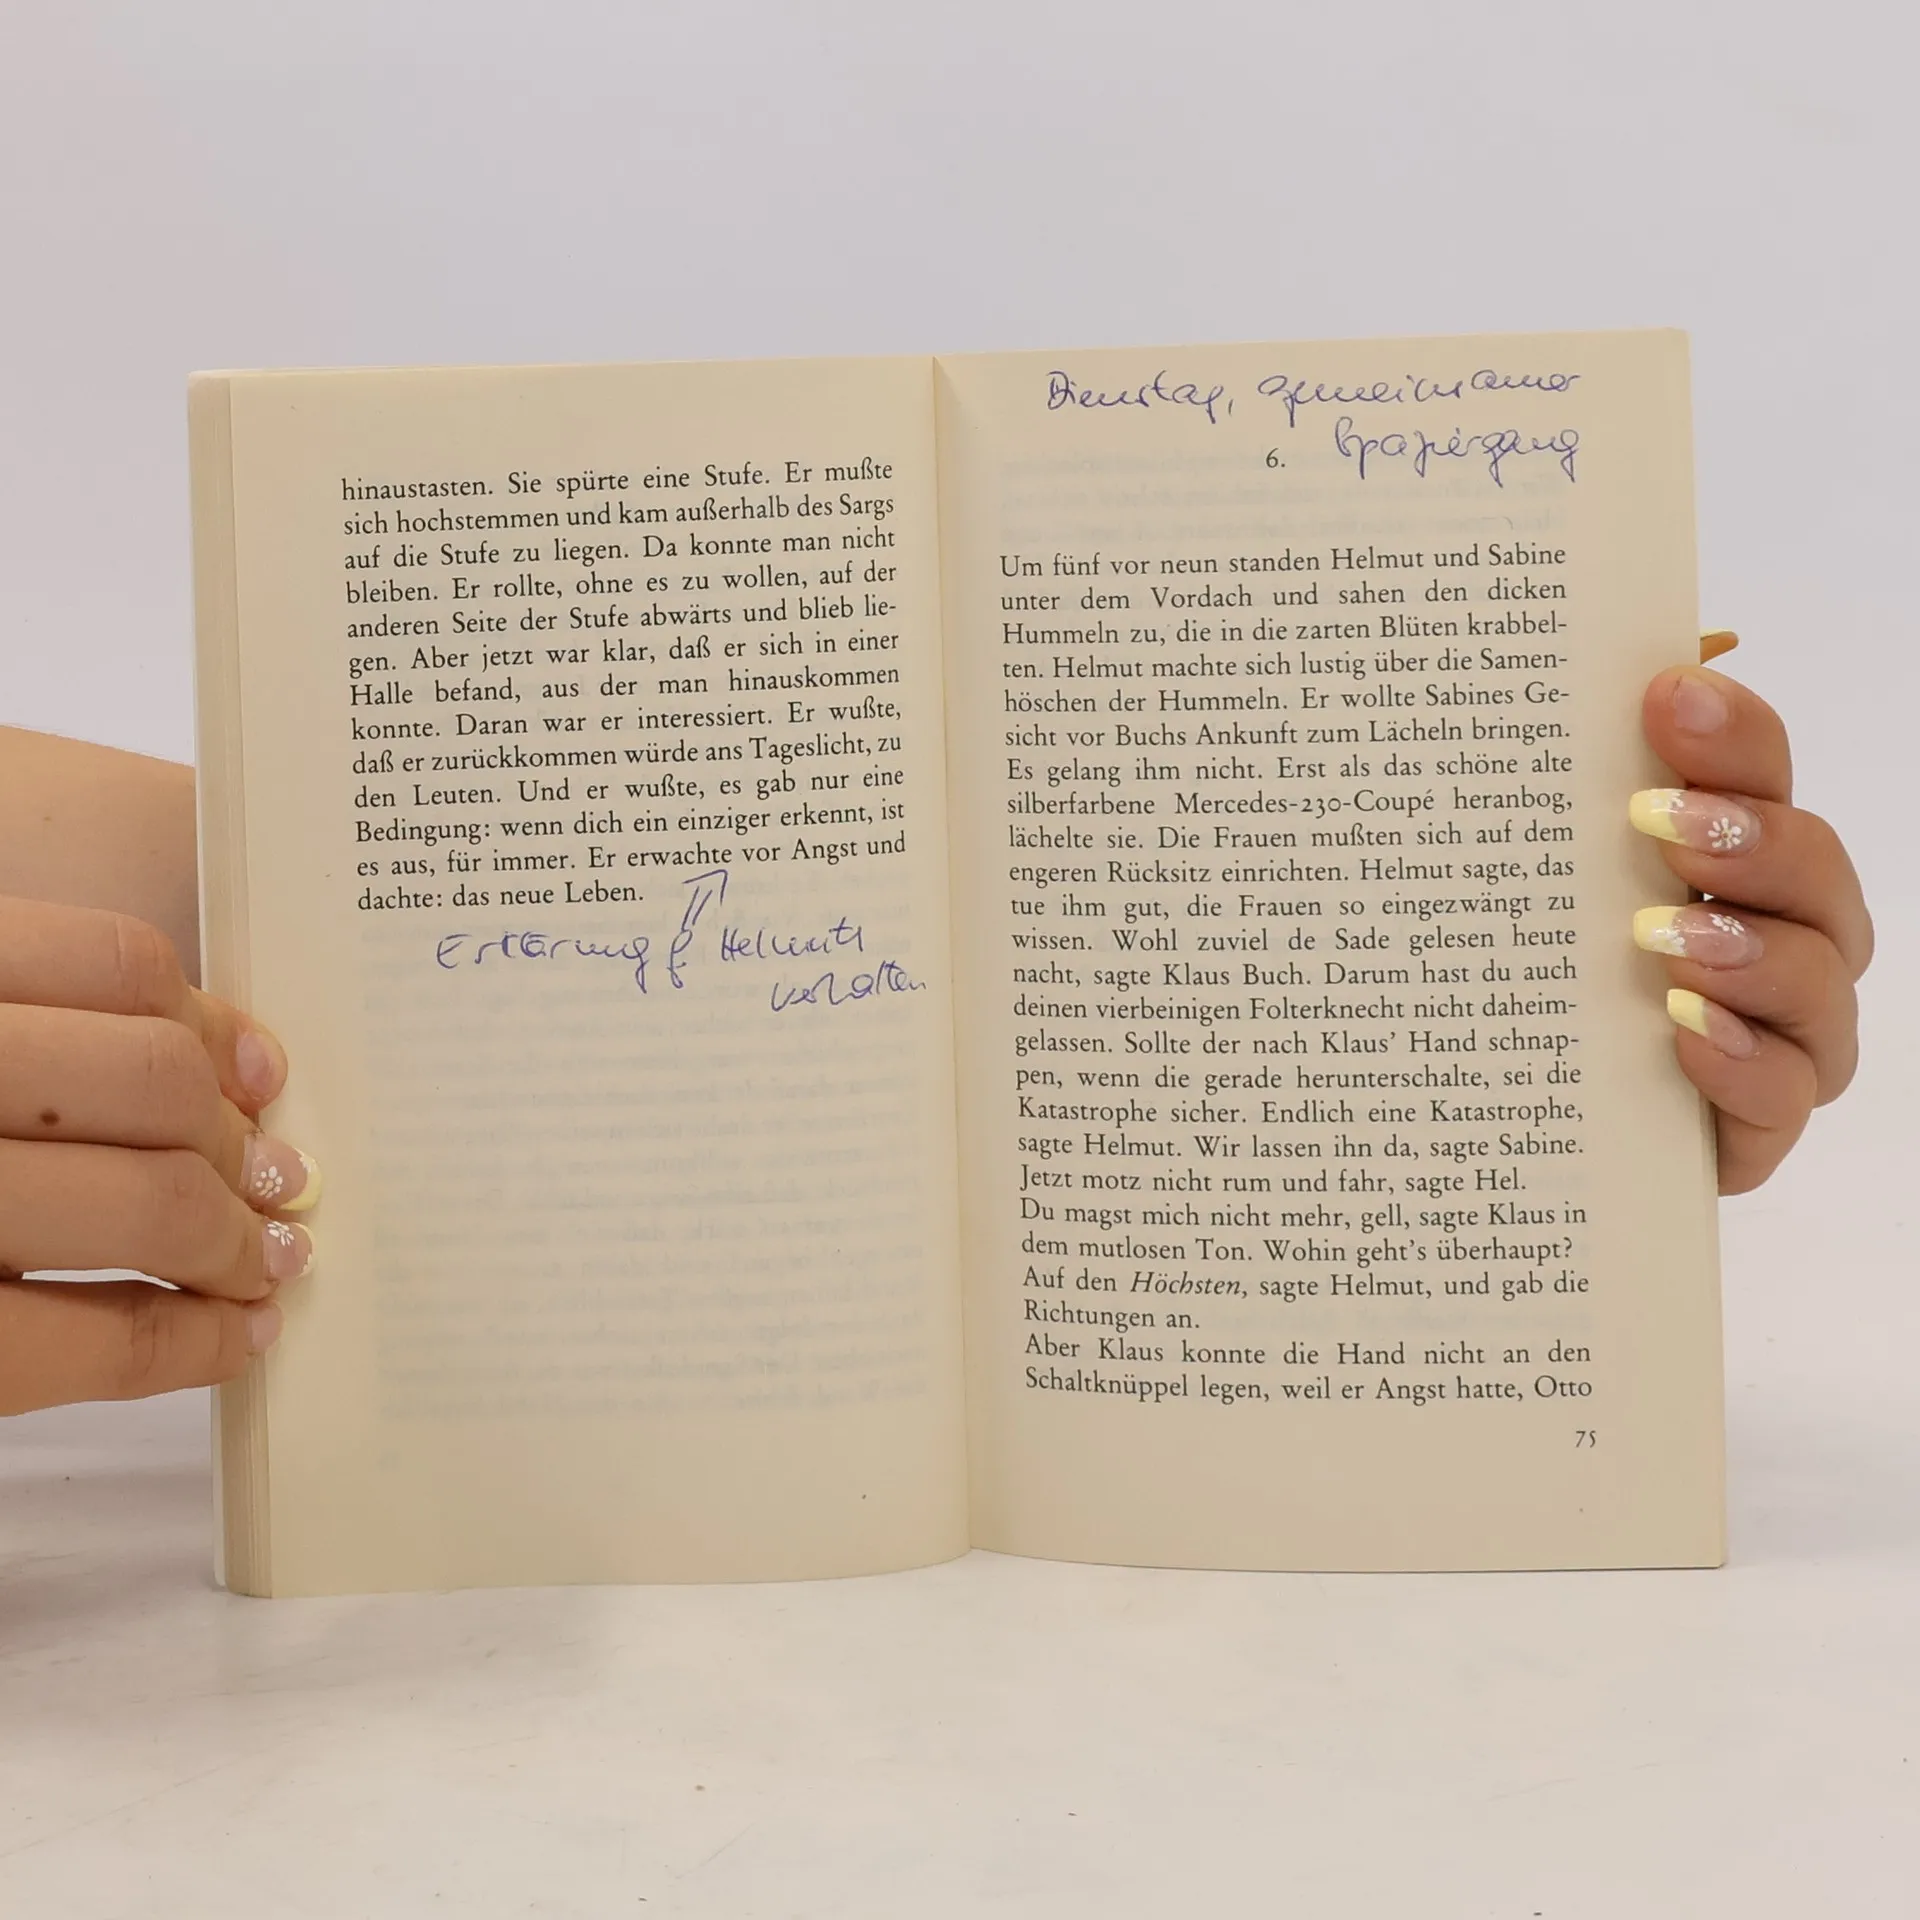 hinaustasten. Sie spürte eine Stufe. Er mußte
sich hochstemmen und kam außerhalb des Sargs
auf die Stufe zu liegen. Da konnte man nicht
bleiben. Er rollte, ohne es zu wollen, auf der
anderen Seite der Stufe abwärts und blieb lie-
gen. Aber jetzt war klar, daß er sich in einer
Halle befand, aus der man hinauskommen
konnte. Daran war er interessiert. Er wußte,
daß er zurückkommen würde ans Tageslicht, zu
den Leuten. Und er wußte, es gab nur eine
Bedingung: wenn dich ein einziger erkennt, ist
es aus, für immer. Er erwachte vor Angst und
dachte: das neue Leben.
Erklärung f. Helmuts
Verhalten
Dienstag, gemeinsamer
Spaziergang
6.
Um fünf vor neun standen Helmut und Sabine
unter dem Vordach und sahen den dicken
Hummeln zu, die in die zarten Blüten krabbel-
ten. Helmut machte sich lustig über die Samen-
höschen der Hummeln. Er wollte Sabines Ge-
sicht vor Buchs Ankunft zum Lächeln bringen.
Es gelang ihm nicht. Erst als das schöne alte
silberfarbene Mercedes-230-Coupé heranbog,
lächelte sie. Die Frauen mußten sich auf dem
engeren Rücksitz einrichten. Helmut sagte, das
tue ihm gut, die Frauen so eingezwängt zu
wissen. Wohl zuviel de Sade gelesen heute
nacht, sagte Klaus Buch. Darum hast du auch
deinen vierbeinigen Folterknecht nicht daheim-
gelassen. Sollte der nach Klaus’ Hand schnap-
pen, wenn die gerade herunterschalte, sei die
Katastrophe sicher. Endlich eine Katastrophe,
sagte Helmut. Wir lassen ihn da, sagte Sabine.
Jetzt motz nicht rum und fahr, sagte Hel.
Du magst mich nicht mehr, gell, sagte Klaus in
dem mutlosen Ton. Wohin geht’s überhaupt?
Auf den Höchsten, sagte Helmut, und gab die
Richtungen an.
Aber Klaus konnte die Hand nicht an den
Schaltknüppel legen, weil er Angst hatte, Otto
75